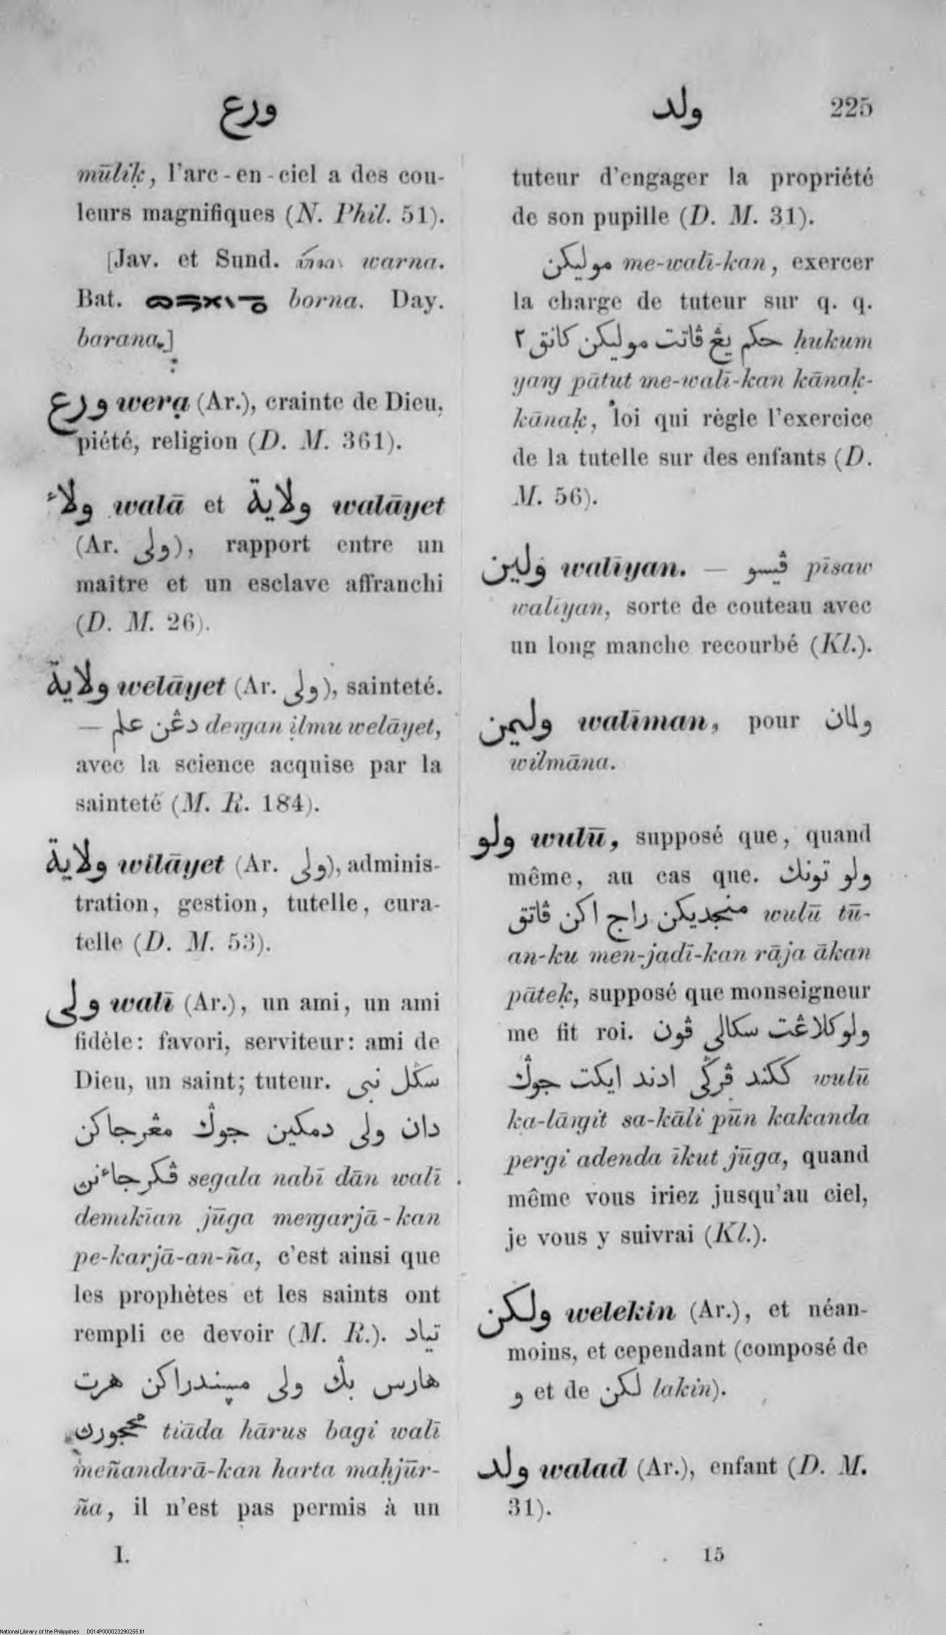 ورع
ولد 225
mūliḳ, l'arc-en-ciel a des cou-
leurs magnifiques (N. Phil. 51).
[Jav. et Sund. warna.
Bat. borna. Day.
barana.]
ورع weṛa (Ar.), crainte de Dieu,
piété, religion (D. M. 361).
ولاء walā et ولاية walāyet
(Ar. ولى), rapport entre un
maître et un esclave affranchi
(D. M. 26).
ولاية welāyet (Ar. ولى), sainteté.
— دڠن علم deṅgan ilmu welāyet,
avec la science acquise par la
sainteté (M. R. 184).
ولاية wilāyet (Ar. ولى), adminis-
tration, gestion, tutelle, cura-
telle (D. M. 53).
ولى walī (Ar.), un ami, un ami
fidèle: favori, serviteur: ami de
Dieu, un saint; tuteur. سڬل نبى
دان ولى دمكين جوڬ مڠرجاكن
ڤكرجاءنڽ segala nabī dān walī
demikīan jūga meṅgarjā-kan
pe-karjā-an-ña, c'est ainsi que
les prophètes et les saints ont
rempli ce devoir (M. R.). تياد
هارس بڬى ولى مڽندراكن هرت
محجورڽ tiāda hārus bagi walī
meñandarā-kan harta maḥjūr-
ña, il n'est pas permis à un
I.
tuteur d'engager la propriété
de son pupille (D. M. 31).
موليكن me-walī-kan, exercer
la charge de tuteur sur q. q.
حكم يڠ ڤاتت موليكن كانق ٢ ḥukum
yaṅg pātut me-walī-kan kānaḳ-
kānaḳ, loi qui règle l'exercice
de la tutelle sur des enfants (D.
M. 56).
ولين walīyan. — ڤيسو pīsaw
walīyan, sorte de couteau avec
un long manche recourbé (Kl.).
وليمن walīman, pour ولمان
wilmāna.
ولو wulū, supposé que, quand
même, au cas que. ولو تونك
منجديكن راج اكن ڤاتق wulū tū-
an-ku men-jadī-kan rāja ākan
pāteḳ, supposé que monseigneur
me fit roi. ولوكلاڠت سكالى ڤون
ككند ڤرڬى ادند ايكت جوڬ wulū
ka-lāṅgit sa-kāli pūn kakanda
pergi adenda īkut jūga, quand
même vous iriez jusqu'au ciel,
je vous y suivrai (Kl.).
ولكن welekin (Ar.), et néan-
moins, et cependant (composé de
و et de لكن lakin).
ولد walad (Ar.), enfant (D. M.
31).
15
National Library of the Philippines